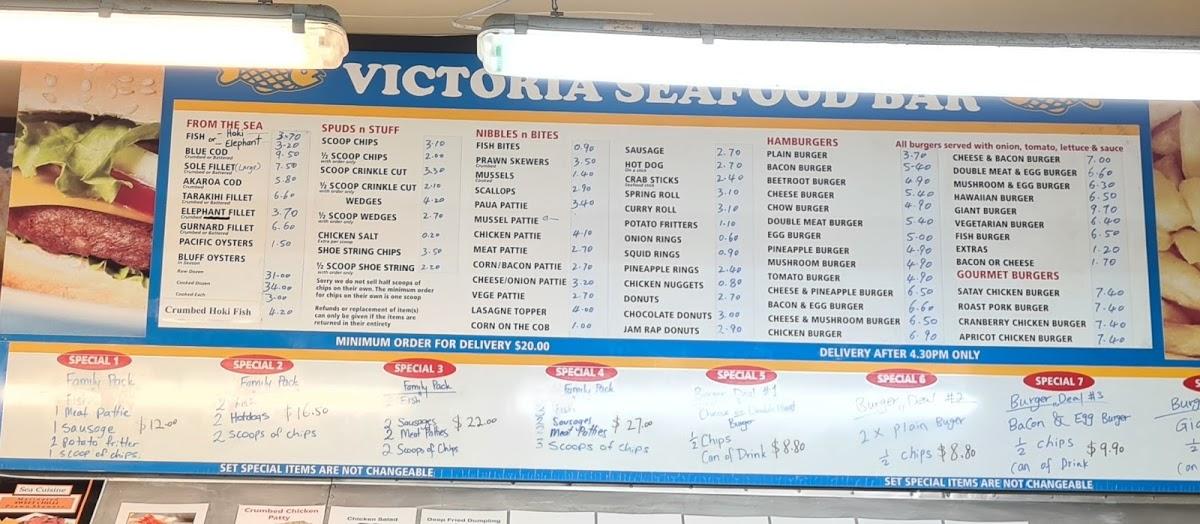 VICTORIA SEAFOOD BAR
FROM THE SEA
FISH or - Hoki 3-70
- Elephant 3-20
BLUE COD 9.50
Crumbed or Battered
SOLE FILLET (Large) 7.50
Crumbed or Battered
AKAROA COD 5.80
Crumbed
TARAKIHI FILLET 6.60
Crumbed or Battered
ELEPHANT FILLET 3.70
Crumbed or Battered
GURNARD FILLET 6.60
Crumbed or Battered
PACIFIC OYSTERS 1.50
BLUFF OYSTERS
In Season
Raw Dozen 31-00
Cooked Dozen 34.00
Cooked Each 3-00
Crumbed Hoki Fish 4.20
SPUDS n STUFF
SCOOP CHIPS 3.10
½ SCOOP CHIPS 2.00
with order only
SCOOP CRINKLE CUT 3.30
½ SCOOP CRINKLE CUT 2.10
with order only
WEDGES 4.20
½ SCOOP WEDGES 2.70
with order only
CHICKEN SALT 0.20
Extra per scoop
SHOE STRING CHIPS 3.50
½ SCOOP SHOE STRING 2.20
with order only
Sorry we do not sell half scoops of
chips on their own. The minimum order
for chips on their own is one scoop
Refunds or replacement of item(s)
can only be given if the items are
returned in their entirety
NIBBLES n BITES
FISH BITES 0.90
PRAWN SKEWERS 3.50
Crumbed
MUSSELS 1.40
Cooked
SCALLOPS 2.90
PAUA PATTIE 3.40
MUSSEL PATTIE
CHICKEN PATTIE 4-10
MEAT PATTIE 2.70
CORN/BACON PATTIE 2.70
CHEESE/ONION PATTIE 3.20
VEGE PATTIE 2.70
LASAGNE TOPPER 4.00
CORN ON THE COB 1.00
SAUSAGE 2.70
HOT DOG 2.70
On a stick
CRAB STICKS 2.40
Seafood stick
SPRING ROLL 3.10
CURRY ROLL 3.10
POTATO FRITTERS 1.10
ONION RINGS 0.60
SQUID RINGS 0.90
PINEAPPLE RINGS 2.40
CHICKEN NUGGETS 0.80
DONUTS 2.70
CHOCOLATE DONUTS 3.00
JAM RAP DONUTS 2.90
HAMBURGERS
All burgers served with onion, tomato, lettuce & sauce
PLAIN BURGER 3-70
BACON BURGER 5-40
BEETROOT BURGER 4.90
CHEESE BURGER 5.40
CHOW BURGER 4.90
DOUBLE MEAT BURGER 5.40
EGG BURGER 5.00
PINEAPPLE BURGER 4.90
MUSHROOM BURGER 4.90
TOMATO BURGER 4.90
CHEESE & PINEAPPLE BURGER 6.50
BACON & EGG BURGER 6.60
CHEESE & MUSHROOM BURGER 6.50
CHICKEN BURGER 6.90
CHEESE & BACON BURGER 7.00
DOUBLE MEAT & EGG BURGER 6.60
MUSHROOM & EGG BURGER 6.30
HAWAIIAN BURGER 6.50
GIANT BURGER 9.70
VEGETARIAN BURGER 6.40
FISH BURGER 6.50
EXTRAS 1.20
BACON OR CHEESE 1.70
GOURMET BURGERS
SATAY CHICKEN BURGER 7.40
ROAST PORK BURGER 7.40
CRANBERRY CHICKEN BURGER 7.40
APRICOT CHICKEN BURGER 7.40
MINIMUM ORDER FOR DELIVERY $20.00
DELIVERY AFTER 4.30PM ONLY
SPECIAL 1
Family Pack
Fish
1 Meat Pattie
1 Sausage $12.00
2 potato fritter
1 scoop of chips.
SPECIAL 2
Family Pack
2 Fish
2 Hotdogs $16.50
2 scoops of chips
SPECIAL 3
Family Pack
Fish
2 Sausages $22.00
2 Meat Patties
2 Scoops of Chips
SPECIAL 4
Family Pack
Fish
Sausages $27.00
Meat Patties
3 Scoops of Chips
SPECIAL 5
Burger Deal #1
Cheese or Double Meat
Burger
½ Chips
Can of Drink $8.80
SPECIAL 6
Burger Deal #2
2 x Plain Burger
½ chips $8.80
SPECIAL 7
Burger Deal #3
Bacon & Egg Burger
½ chips $9.90
Can of Drink
SET SPECIAL ITEMS ARE NOT CHANGEABLE
SET SPECIAL ITEMS ARE NOT CHANGEABLE
Sea Cuisine
Crumbed Chicken
Patty
Chicken Salad
Deep Fried Dumpling